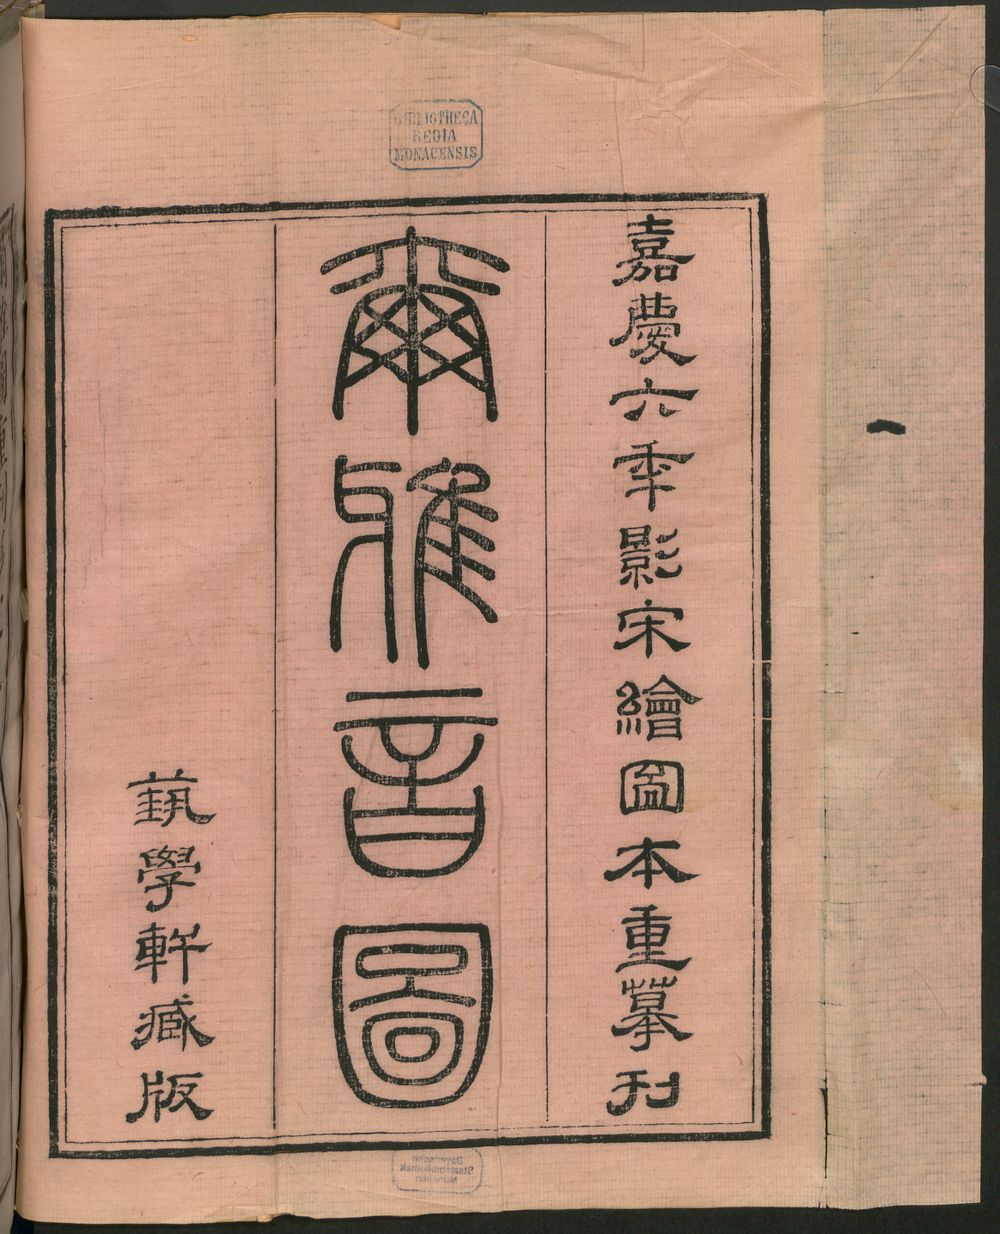 嘉慶六年影宋繪圖本重摹刊
爾雅音圖
藝學軒藏版
BIBLIOTHECA
REGIA
MONACENSIS
Bayerische
Staatsbibliothek
München